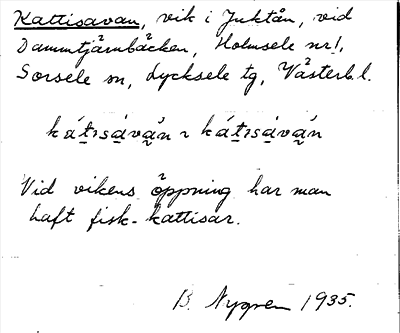 Kattisavan, vik i Juktån, vid
Dammtjärnbäcken, Holmsele nr 1,
Sorsele sn, Lycksele tg, Västerb. l.
kát̠ɪsávạ̊́n ɿ kát̠ɪsávạ̊́n
Vid vikens öppning har man
haft fisk-kattisar.
B. Nygren 1935.